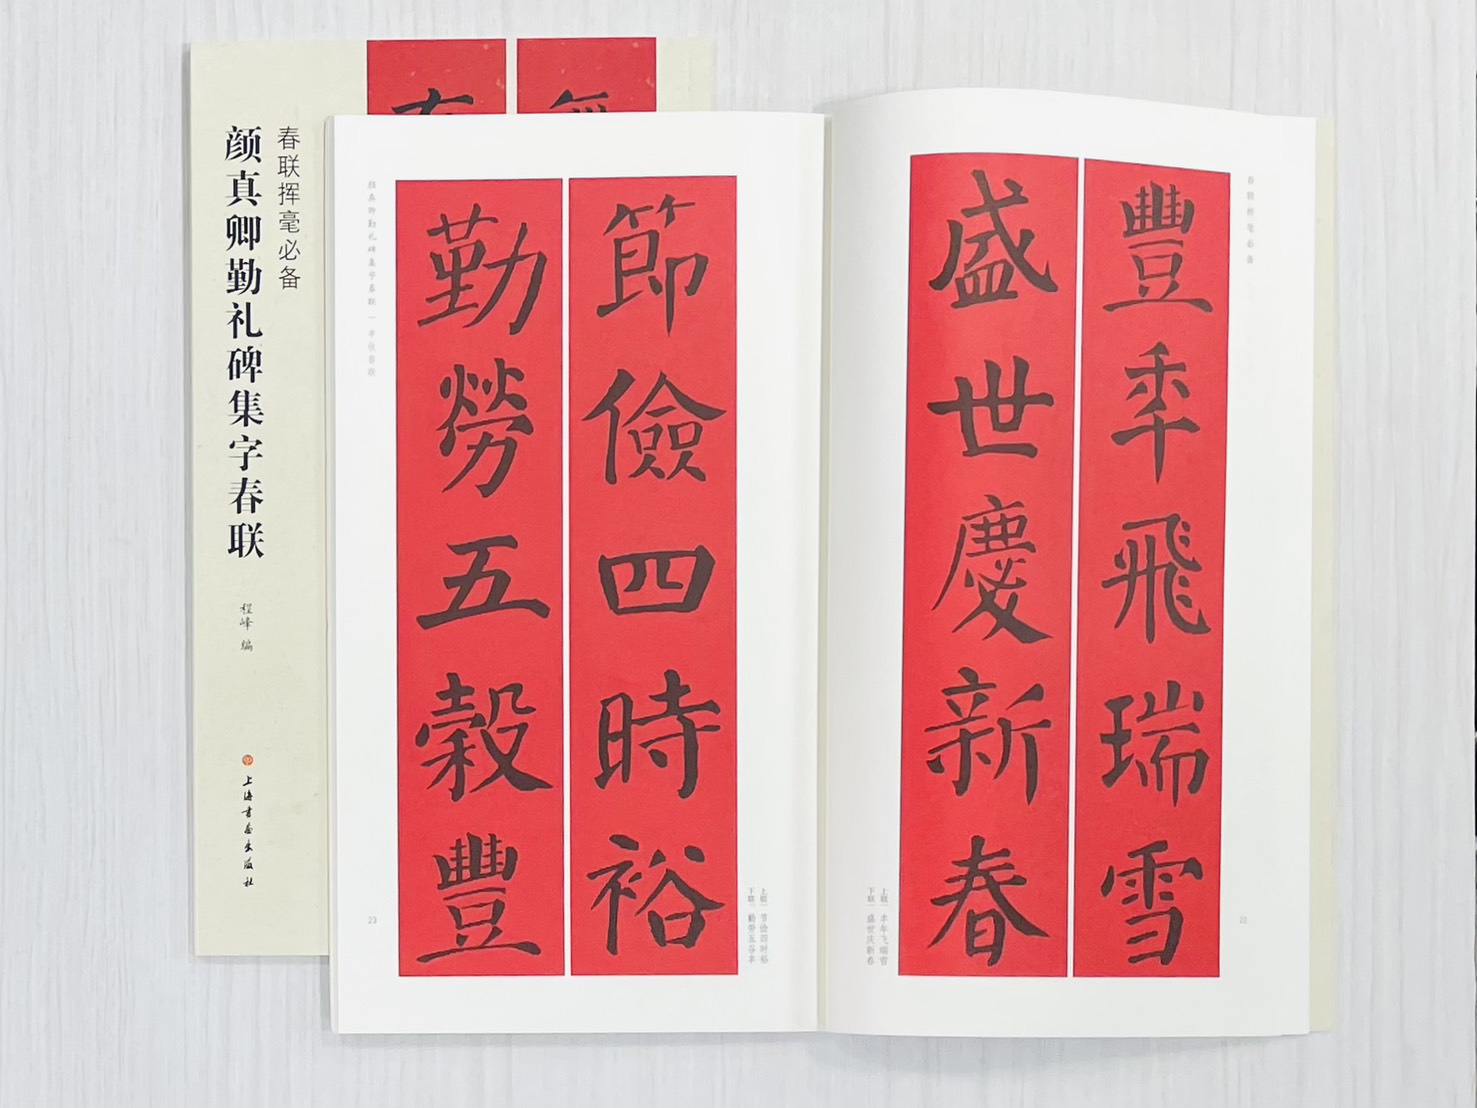 春联挥毫必备
颜真卿勤礼碑集字春联
程峰 编
上海书画出版社
春联挥毫必备
豐年飛瑞雪
盛世慶新春
上联｜丰年飞瑞雪
下联｜盛世庆新春
22
節儉四時裕
勤勞五穀豐
上联｜节俭四时裕
下联｜勤劳五谷丰
颜真卿勤礼碑集字春联｜丰收春联
23